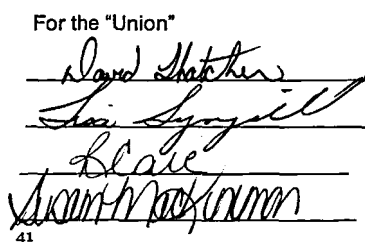 For the "Union"
David Thatcher
Lisa
Susan MacKinnon
41